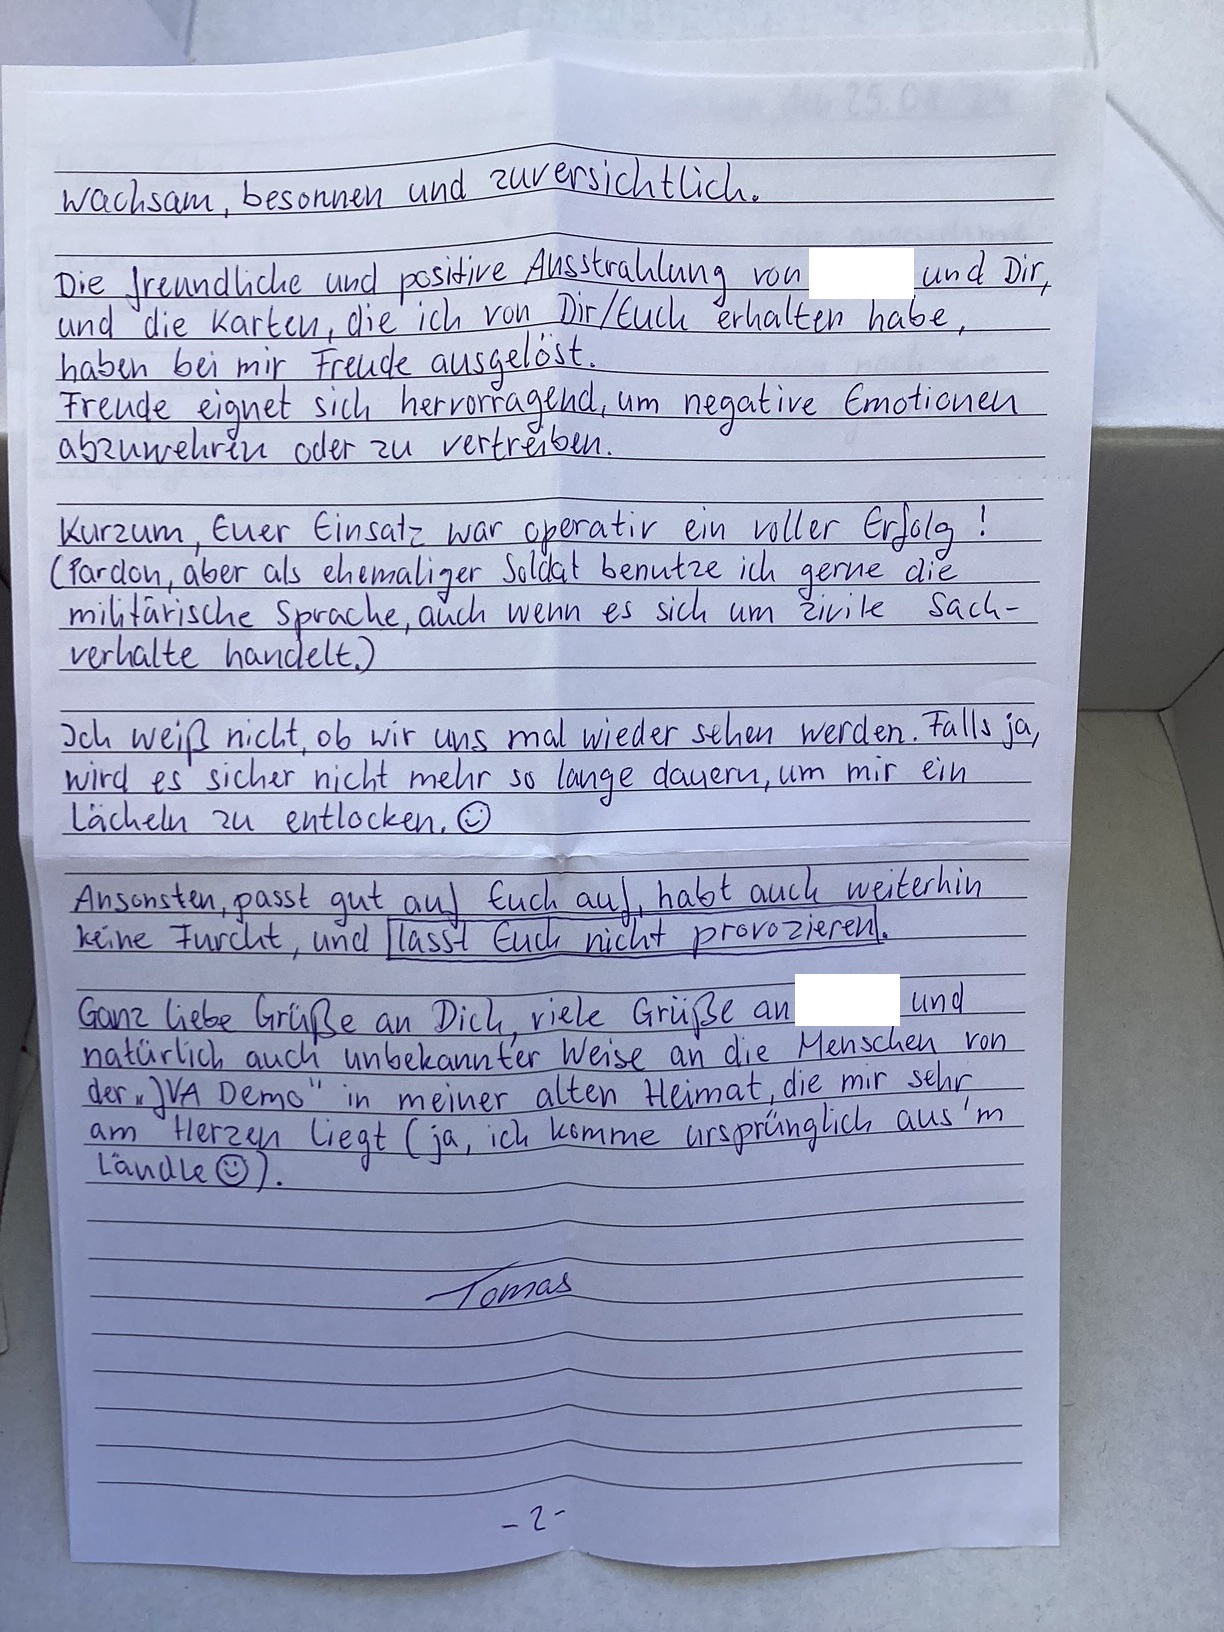 wachsam, besonnen und zuversichtlich.
Die freundliche und positive Ausstrahlung von und Dir,
und die Karten, die ich von Dir/Euch erhalten habe,
haben bei mir Freude ausgelöst.
Freude eignet sich hervorragend, um negative Emotionen
abzuwehren oder zu vertreiben.
Kurzum, Euer Einsatz war operativ ein voller Erfolg!
(Pardon, aber als ehemaliger Soldat benutze ich gerne die
militärische Sprache, auch wenn es sich um zivile Sach-
verhalte handelt.)
Ich weiß nicht, ob wir uns mal wieder sehen werden. Falls ja,
wird es sicher nicht mehr so lange dauern, um mir ein
Lächeln zu entlocken. ☺
Ansonsten, passt gut auf Euch auf, habt auch weiterhin
keine Furcht, und lasst Euch nicht provozieren.
Ganz liebe Grüße an Dich, viele Grüße an und
natürlich auch unbekannter Weise an die Menschen von
der „JVA Demo" in meiner alten Heimat, die mir sehr
am Herzen liegt (ja, ich komme ursprünglich aus'm
Ländle ☺).
Tomas
- 2 -